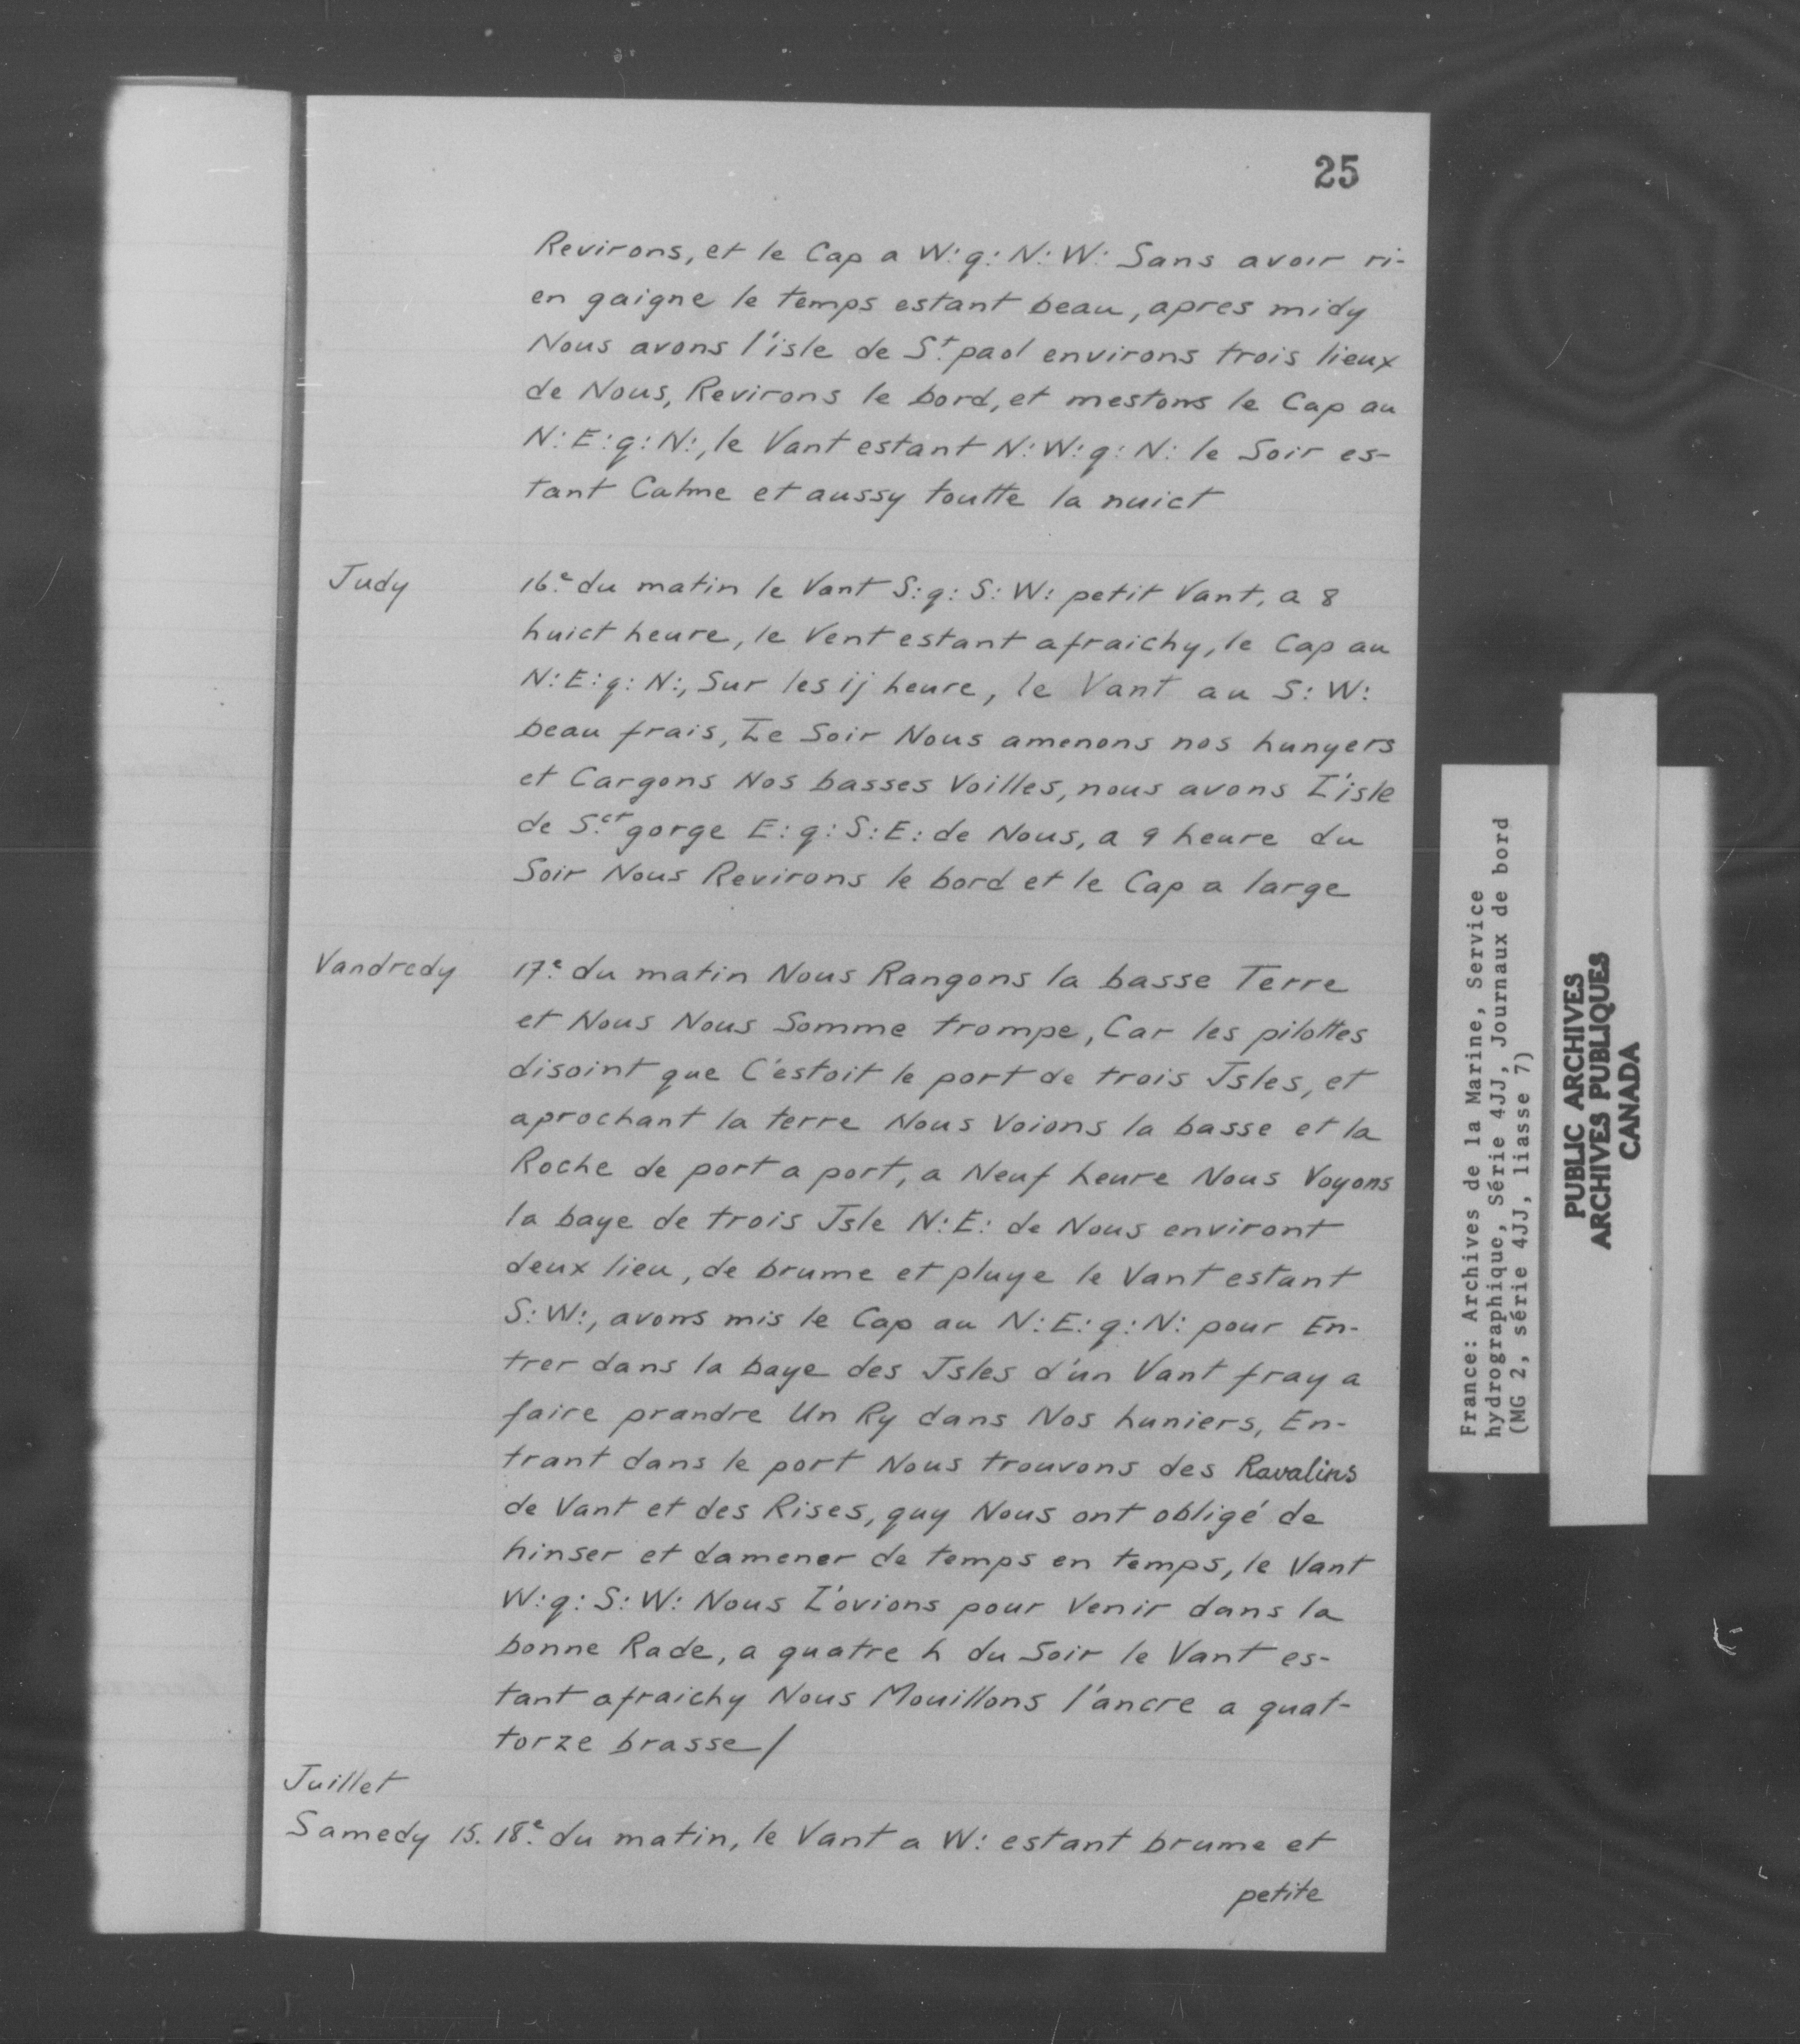 25
Revirons, et le Cap a W:q:N:W: Sans avoir ri-
en gaigne le temps estant beau, apres midy
Nous avons l'isle de St. paol environs trois lieux
de Nous, Revirons le bord, et mestons le Cap au
N:E:q:N:, le Vant estant N:W:q:N: le Soir es-
tant Calme et aussy toutte la nuict
Judy 16e. du matin le Vant S:q:S:W: petit Vant, a 8
huict heure, le Vent estant afraichy, le Cap au
N:E:q:N:, Sur les ij heure, le Vant au S:W:
beau frais, Le Soir Nous amenons nos hunyers
et Cargons Nos basses Voilles, nous avons L'isle
de Sct. gorge E:q:S:E: de Nous, a 9 heure du
Soir Nous Revirons le bord et le Cap a large
Vandredy 17e. du matin Nous Rangons la basse Terre
et Nous Nous Somme trompe, Car les pilottes
disoint que C'estoit le port de trois Isles, et
aprochant la terre Nous Voions la basse et la
Roche de port a port, a Neuf heure Nous Voyons
la baye de trois Isle N:E: de Nous environt
deux lieu, de brume et pluye le Vant estant
S:W:, avons mis le Cap au N:E:q:N: pour En-
trer dans la baye des Isles d'un Vant fray a
faire prandre Un Ry dans Nos huniers, En-
trant dans le port Nous trouvons des Ravalins
de Vant et des Rises, quy Nous ont obligé de
hinser et damener de temps en temps, le Vant
W:q:S:W: Nous L'ovions pour Venir dans la
bonne Rade, a quatre h du Soir le Vant es-
tant afraichy Nous Mouillons l'ancre a quat-
torze brasse/
Juillet
Samedy 15. 18e. du matin, le Vant a W: estant brume et
petite
France: Archives de la Marine, Service
hydrographique, Série 4JJ, Journaux de bord
(MG 2, série 4JJ, liasse 7)
PUBLIC ARCHIVES
ARCHIVES PUBLIQUES
CANADA